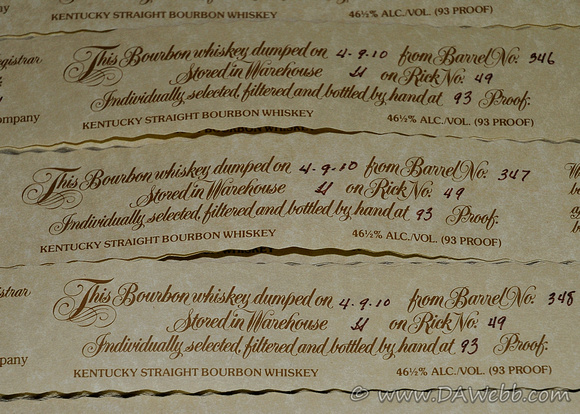 KENTUCKY STRAIGHT BOURBON WHISKEY 46½% ALC./VOL. (93 PROOF)
gistrar
This Bourbon whiskey dumped on 4-9-10 from Barrel No: 346
Stored in Warehouse H on Rick No: 49
Individually selected, filtered and bottled by hand at 93 Proof.
ompany
KENTUCKY STRAIGHT BOURBON WHISKEY 46½% ALC./VOL. (93 PROOF)
This Bourbon whiskey dumped on 4-9-10 from Barrel No: 347
Stored in Warehouse H on Rick No: 49
Individually selected, filtered and bottled by hand at 93 Proof.
KENTUCKY STRAIGHT BOURBON WHISKEY 46½% ALC./VOL. (93 PROOF)
istrar
This Bourbon whiskey dumped on 4-9-10 from Barrel No: 348
Stored in Warehouse H on Rick No: 49
Individually selected, filtered and bottled by hand at 93 Proof.
pany
KENTUCKY STRAIGHT BOURBON WHISKEY 46½% ALC./VOL. (93 PROOF)
© www.DAWebb.com